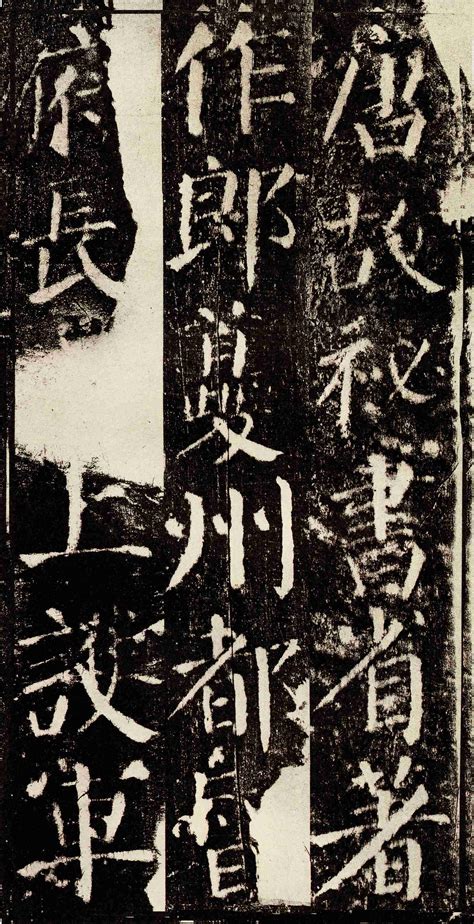 唐故祕書省著
作郎夔州都督
府長上護軍